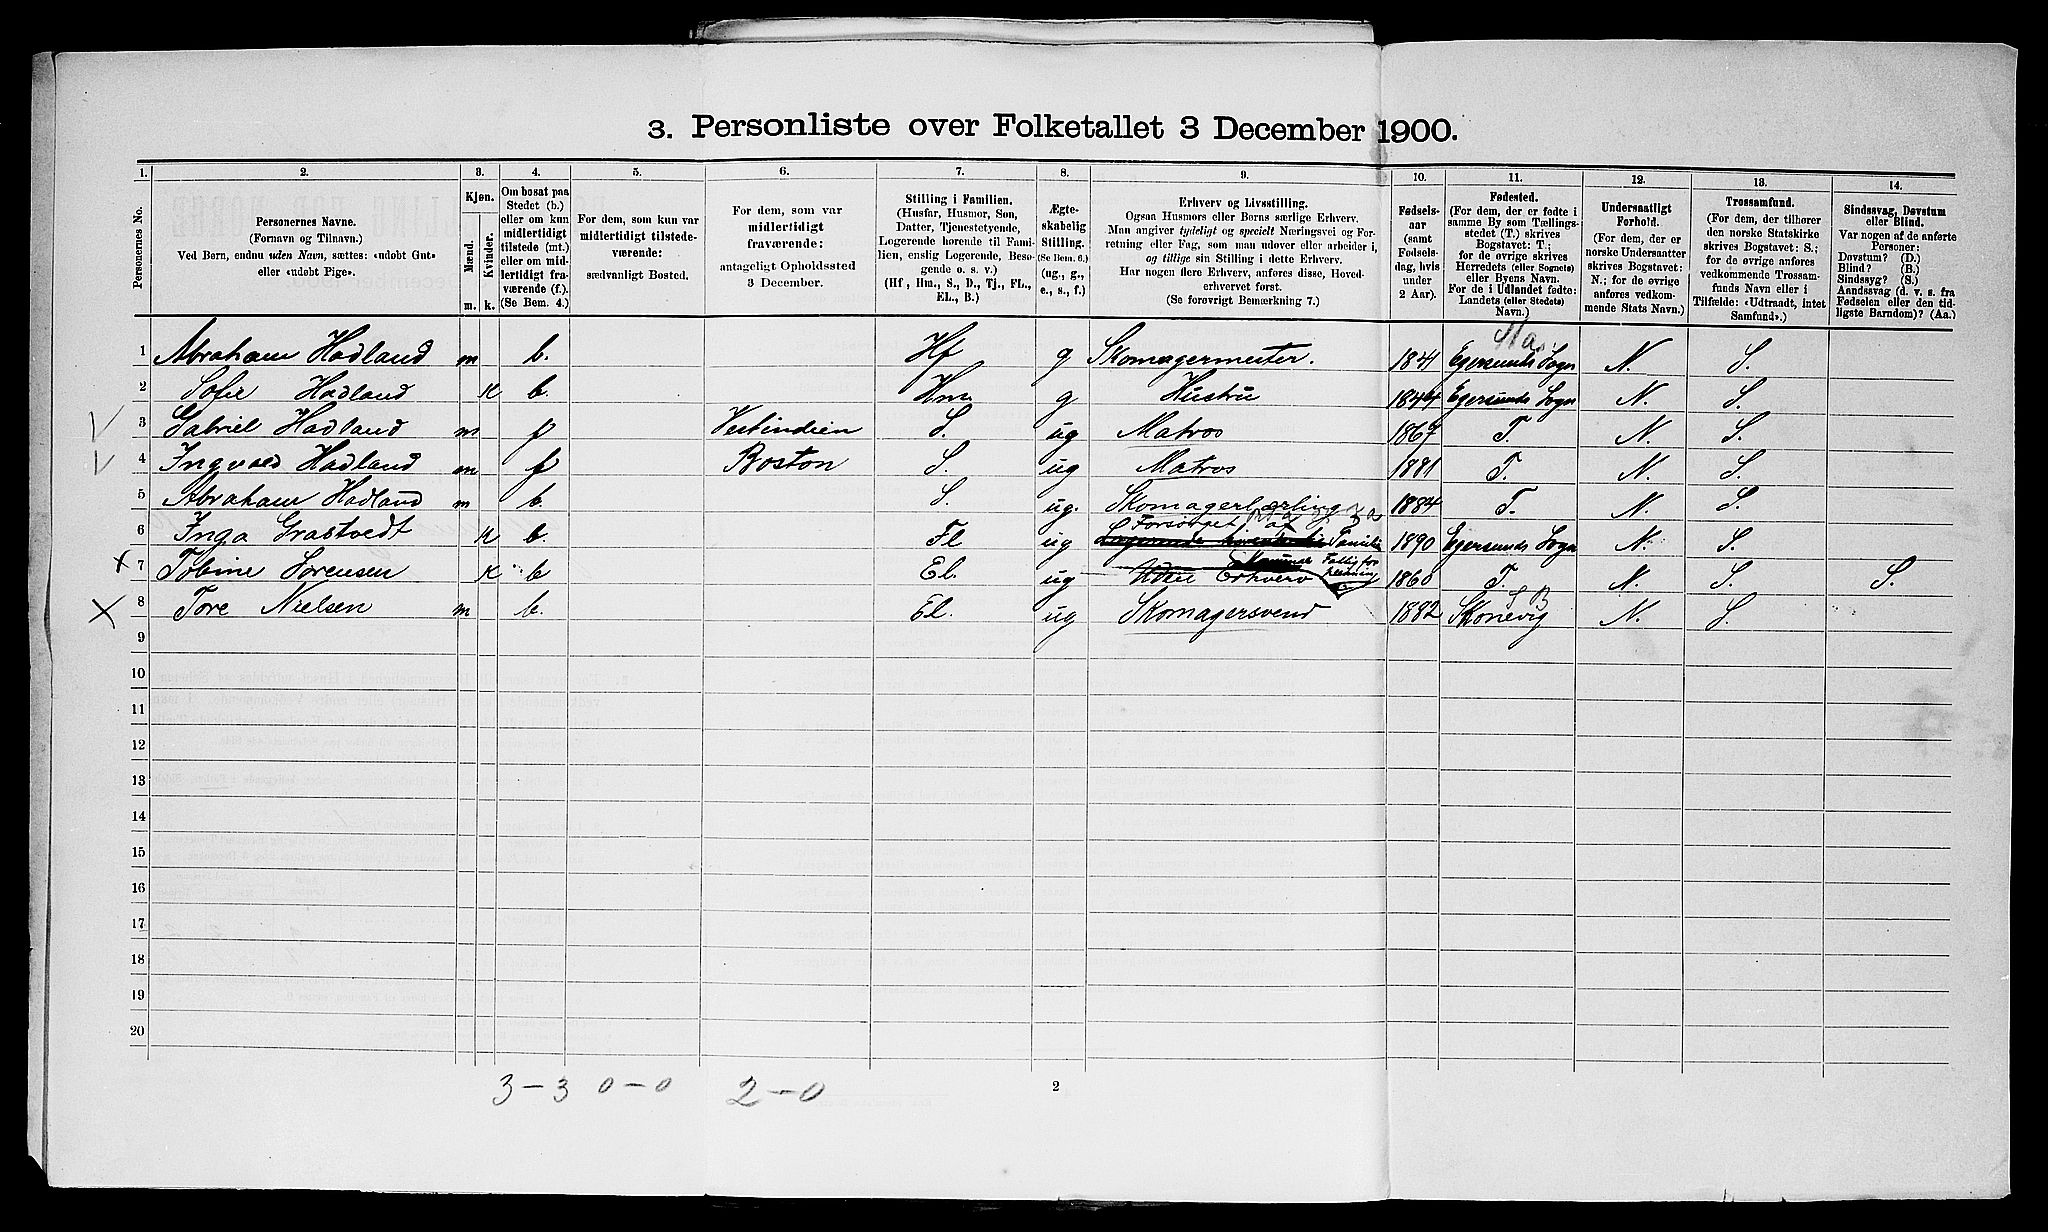 3. Personliste over Folketallet 3 December 1900.
1. 2. 3. 4. 5. 6. 7. 8. 9. 10. 11. 12. 13. 14.
Personernes No.
Personernes Navne.
(Fornavn og Tilnavn.)
Ved Børn, endnu uden Navn, sættes: «udøbt Gut»
eller «udøbt Pige».
Kjøn.
Mænd.
Kvinder.
m. k.
Om bosat paa
Stedet (b.)
eller om kun
midlertidigt
tilstede (mt.)
eller om mid-
lertidigt fra-
værende (f.).
(Se Bem. 4.)
For dem, som kun var
midlertidigt tilstede-
værende:
sædvanligt Bosted.
For dem, som var
midlertidigt
fraværende:
antageligt Opholdssted
3 December.
Stilling i Familien.
(Husfar, Husmor, Søn,
Datter, Tjenestetyende,
Logerende hørende til Fami-
lien, enslig Logerende, Besø-
gende o. s. v.)
(Hf., Hm., S., D., Tj., FL.,
EL., B.)
Ægte-
skabelig
Stilling.
(Se Bem. 6.)
(ug., g.,
e., s., f.)
Erhverv og Livsstilling.
Ogsaa Husmors eller Børns særlige Erhverv.
Man angiver tydeligt og specielt Næringsvei og For-
retning eller Fag, som man udøver eller arbeider i,
og tillige sin Stilling i dette Erhverv.
Har nogen flere Erhverv, anføres disse, Hoved-
erhvervet først.
(Se forøvrigt Bemærkning 7.)
Fødsels-
aar
(samt
Fødsels-
dag, hvis
under
2 Aar).
Fødested.
(For dem, der er fødte i
samme By som Tællings-
stedet (T.) skrives
Bogstavet: T.;
for de øvrige skrives
Herredets (eller Sognets)
eller Byens Navn.
For de i Udlandet fødte:
Landets (eller Stedets)
Navn.)
Undersaatligt
Forhold.
(For dem, der er
norske Undersaatter
skrives Bogstavet:
N.; for de øvrige
anføres vedkom-
mende Stats Navn.)
Trossamfund.
(For dem, der tilhører
den norske Statskirke
skrives Bogstavet: S.;
for de øvrige anføres
vedkommende Trossam-
funds Navn eller i
Tilfælde: «Udtraadt, intet
Samfund».)
Sindssvag, Døvstum
eller Blind.
Var nogen af de anførte
Personer:
Døvstum? (D.)
Blind? (B.)
Sindssyg? (S.)
Aandssvag (d. v. s. fra
Fødselen eller den tid-
ligste Barndom)? (Aa.)
1 Abraham Hadland m b. Hf g Skomagermester. 1841 Egersunds Sogn N. S.
2 Sofie Hadland K b. Hm. g Hustru 1844 Egersunds Sogn N. S.
3 Gabriel Hadland m f Vestindien S. ug Matros 1867 T. N. S.
4 Ingvald Hadland m f Boston S. ug Matros 1881 T. N. S.
5 Abraham Hadland m b. S. ug. Skomagerlærling 1884 T. N. S.
6 Inga Grastvedt K b. Fl ug Forsørget af Familie 1890 Egersunds Sogn N. S.
7 Tobine Sørensen K b El. ug Uden Erhverv Fattigfor 1860 T. N. S. S.
8 Tore Nielsen m b. El. ug Skomagersvend 1882 Skonevig N. S.
9
10
11
12
13
14
15
16
17
18
19
20
3 – 3 0 – 0 2 – 0
2